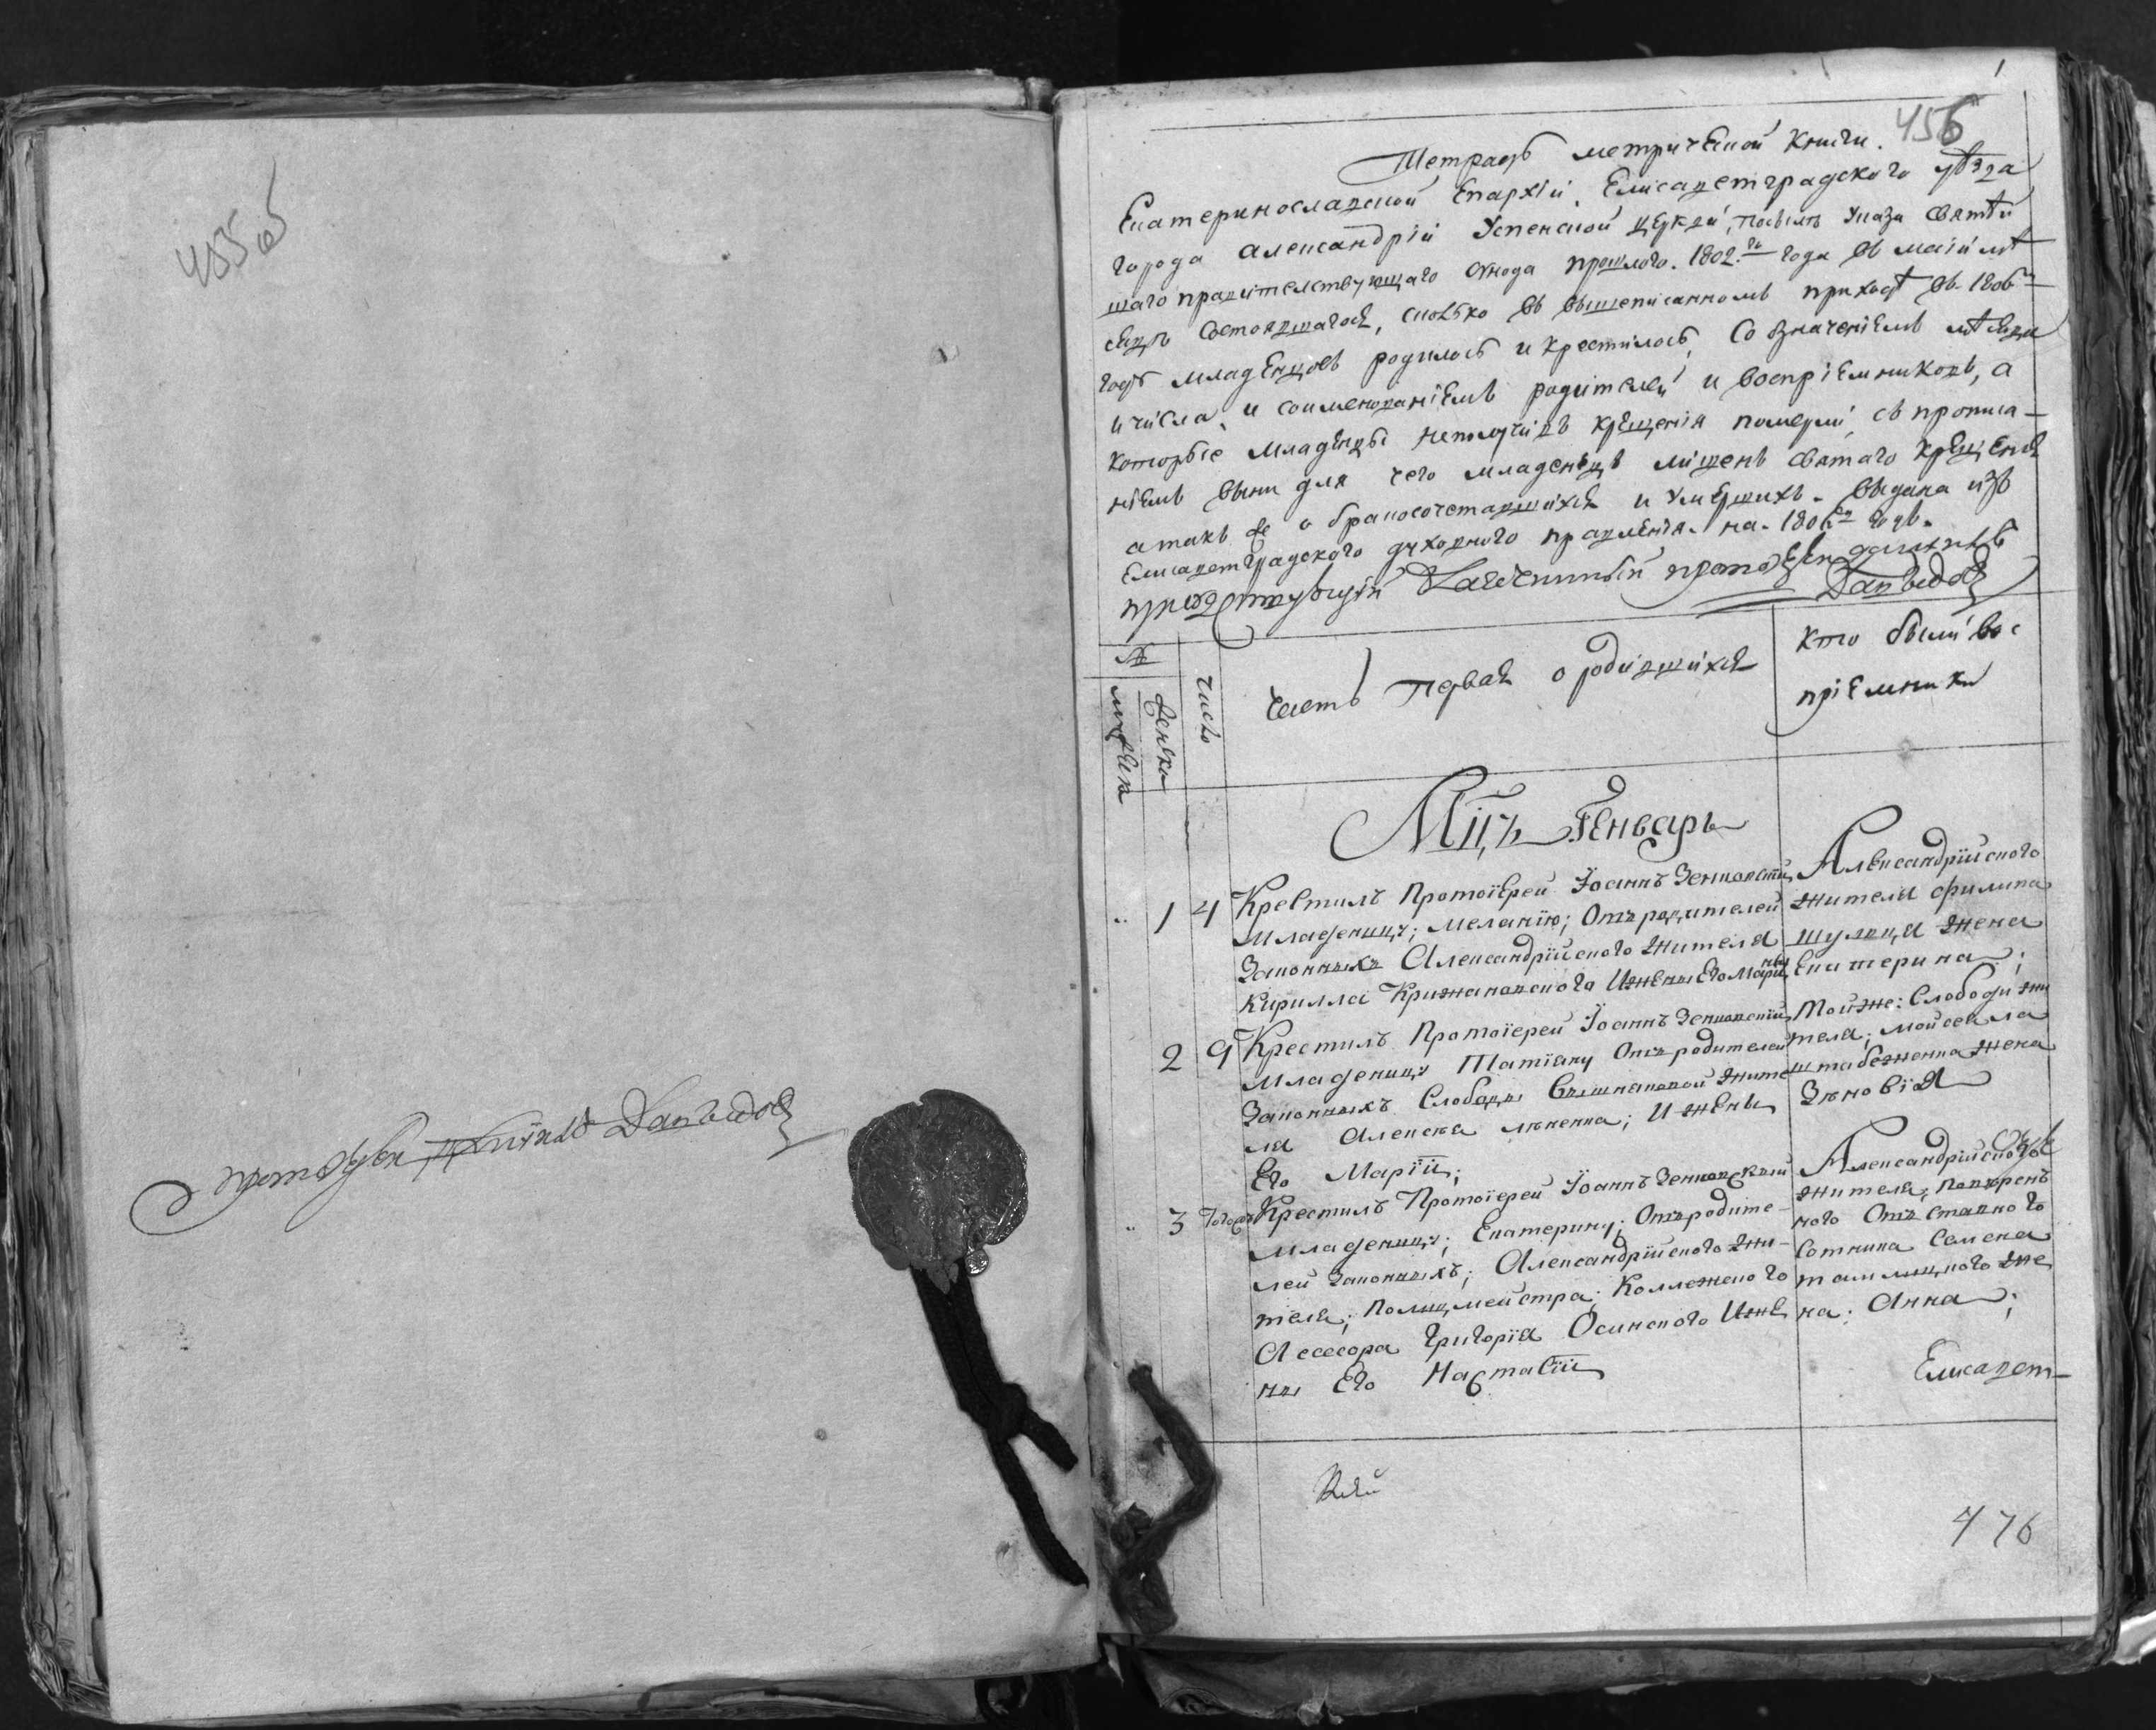 455 об
Протоіерей Данъевъ
1
456
Тетрадь метрической книги.
Екатеринославской Епархіи, Елисаветградского уѣзда
города Александріи Успенской церкви, посилѣ Указа Святѣй
шаго правителствующаго Сѵнода прошлого. 1802.го года въ маіи мѣ
сяцѣ состоявшагося, сколько въ вышеписанномъ приходѣ въ 1806м
годѣ младенцовъ родилось и крестилось, со означеніемъ мѣсяца
и числа, и соименованіемъ родителей и воспріемниковъ, а
которые младенцы неполучивъ крещенія померли, съ прописа-
ніемъ вины для чего младенецъ лишенъ святаго крещенія
атакъ же о бракосочетавшихся и умершихъ. выдана изъ
Елисаветградского духовного правления. на. 1806й годъ.
присудствующій
№
мужеска
женска
число
Часть первая о родившихся
кто были вос
пріемники
Мцъ Генварь
1 4 Крестилъ Протоіерей Іоаннъ Зенковскій
младеницу; Меланію; Отъ родителей
Законныхъ Александрійского жителя
Кирилла Крижановского Ижены Его Маріи
Александрійского
жителя филипа
шулкца жена
Екатерина;
2 9 Крестилъ Протоіерей Іоаннъ Зенковскій
младеницу Татіану Отъ родителей
Законныхъ Слободы жите
ля Алексея ; Ижены
Его Маріи;
Тойже: Слободи жи
теля; мойсея ла
штабеженка жена
Зѣновія
3 Тогожъ Крестилъ Протоіерей Іоаннъ Зенковскій
младеницу; Екатерину; Отъ родите-
лей Законныхъ; Александрійского жи-
теля; Полицмейстра; Коллежского
Асесора Григорія Осинского Ижѣ
ны Его Настасіи
Александрійского
жителя;
ного Отъ ставного
Сотника Семена
же
на: Анна;
Елисавет-
476